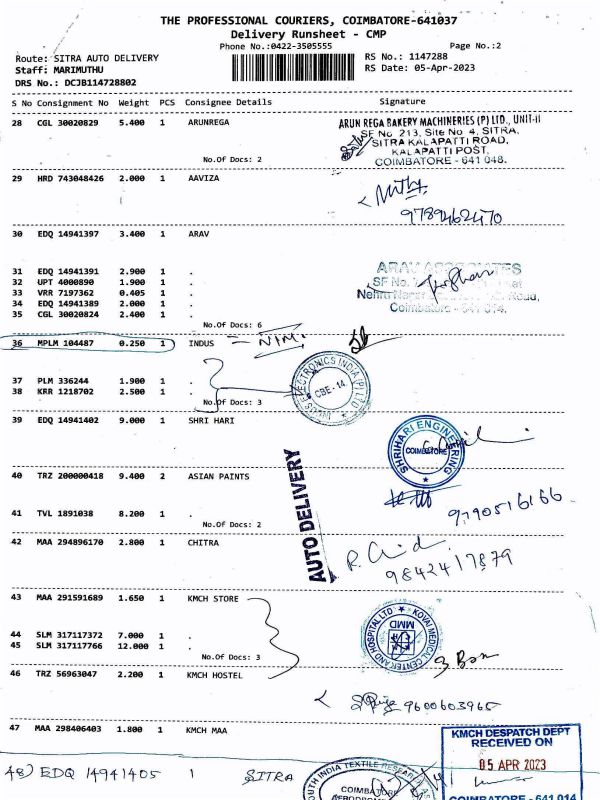 THE PROFESSIONAL COURIERS, COIMBATORE-641037
Delivery Runsheet - CMP
Phone No.:0422-3505555 Page No.:2
Route: SITRA AUTO DELIVERY RS No.: 1147288
Staff: MARIMUTHU RS Date: 05-Apr-2023
DRS No.: DCJB114728802
S No Consignment No Weight PCS Consignee Details Signature
28 CGL 30020829 5.400 1 ARUNREGA
ARUN REGA BAKERY MACHINERIES (P) LTD., UNIT-II
SF No 213, Site No 4, SITRA,
SITRA KALAPATTI ROAD,
KALAPATTI POST,
COIMBATORE - 641 048.
No.Of Docs: 2
29 HRD 743048426 2.000 1 AAVIZA
9789462470
30 EDQ 14941397 3.400 1 ARAV
31 EDQ 14941391 2.900 1 .
32 UPT 4000890 1.900 1 .
33 VRR 7197362 0.405 1 .
34 EDQ 14941389 2.000 1 .
35 CGL 30020824 2.400 1 .
ARAV ASSOCIATES
SF No.
Road,
Coimbatore - 641 014.
No.Of Docs: 6
36 MPLM 104487 0.250 1 INDUS = NIM.
37 PLM 336244 1.900 1 .
38 KRR 1218702 2.500 1 .
INDUS ELECTRONICS INDIA (P) LTD
CBE - 14
No.Of Docs: 3
39 EDQ 14941402 9.000 1 SHRI HARI
SHRIHARI ENGINEERING
COIMBATORE
40 TRZ 200000418 9.400 2 ASIAN PAINTS
41 TVL 1891038 8.200 1 .
9790516166
No.Of Docs: 2
AUTO DELIVERY
42 MAA 294896170 2.800 1 CHITRA
9842417879
43 MAA 291591689 1.650 1 KMCH STORE
44 SLM 317117372 7.000 1 .
45 SLM 317117766 12.000 1 .
KOVAI MEDICAL CENTER AND HOSPITAL LTD
MMD
No.Of Docs: 3
46 TRZ 56963047 2.200 1 KMCH HOSTEL
9600603965
47 MAA 298406403 1.800 1 KMCH MAA
KMCH DESPATCH DEPT
RECEIVED ON
05 APR 2023
COIMBATORE - 641 014
48) EDQ 14941405 1 SITRA
SOUTH INDIA TEXTILE RESEARCH
COIMBATORE